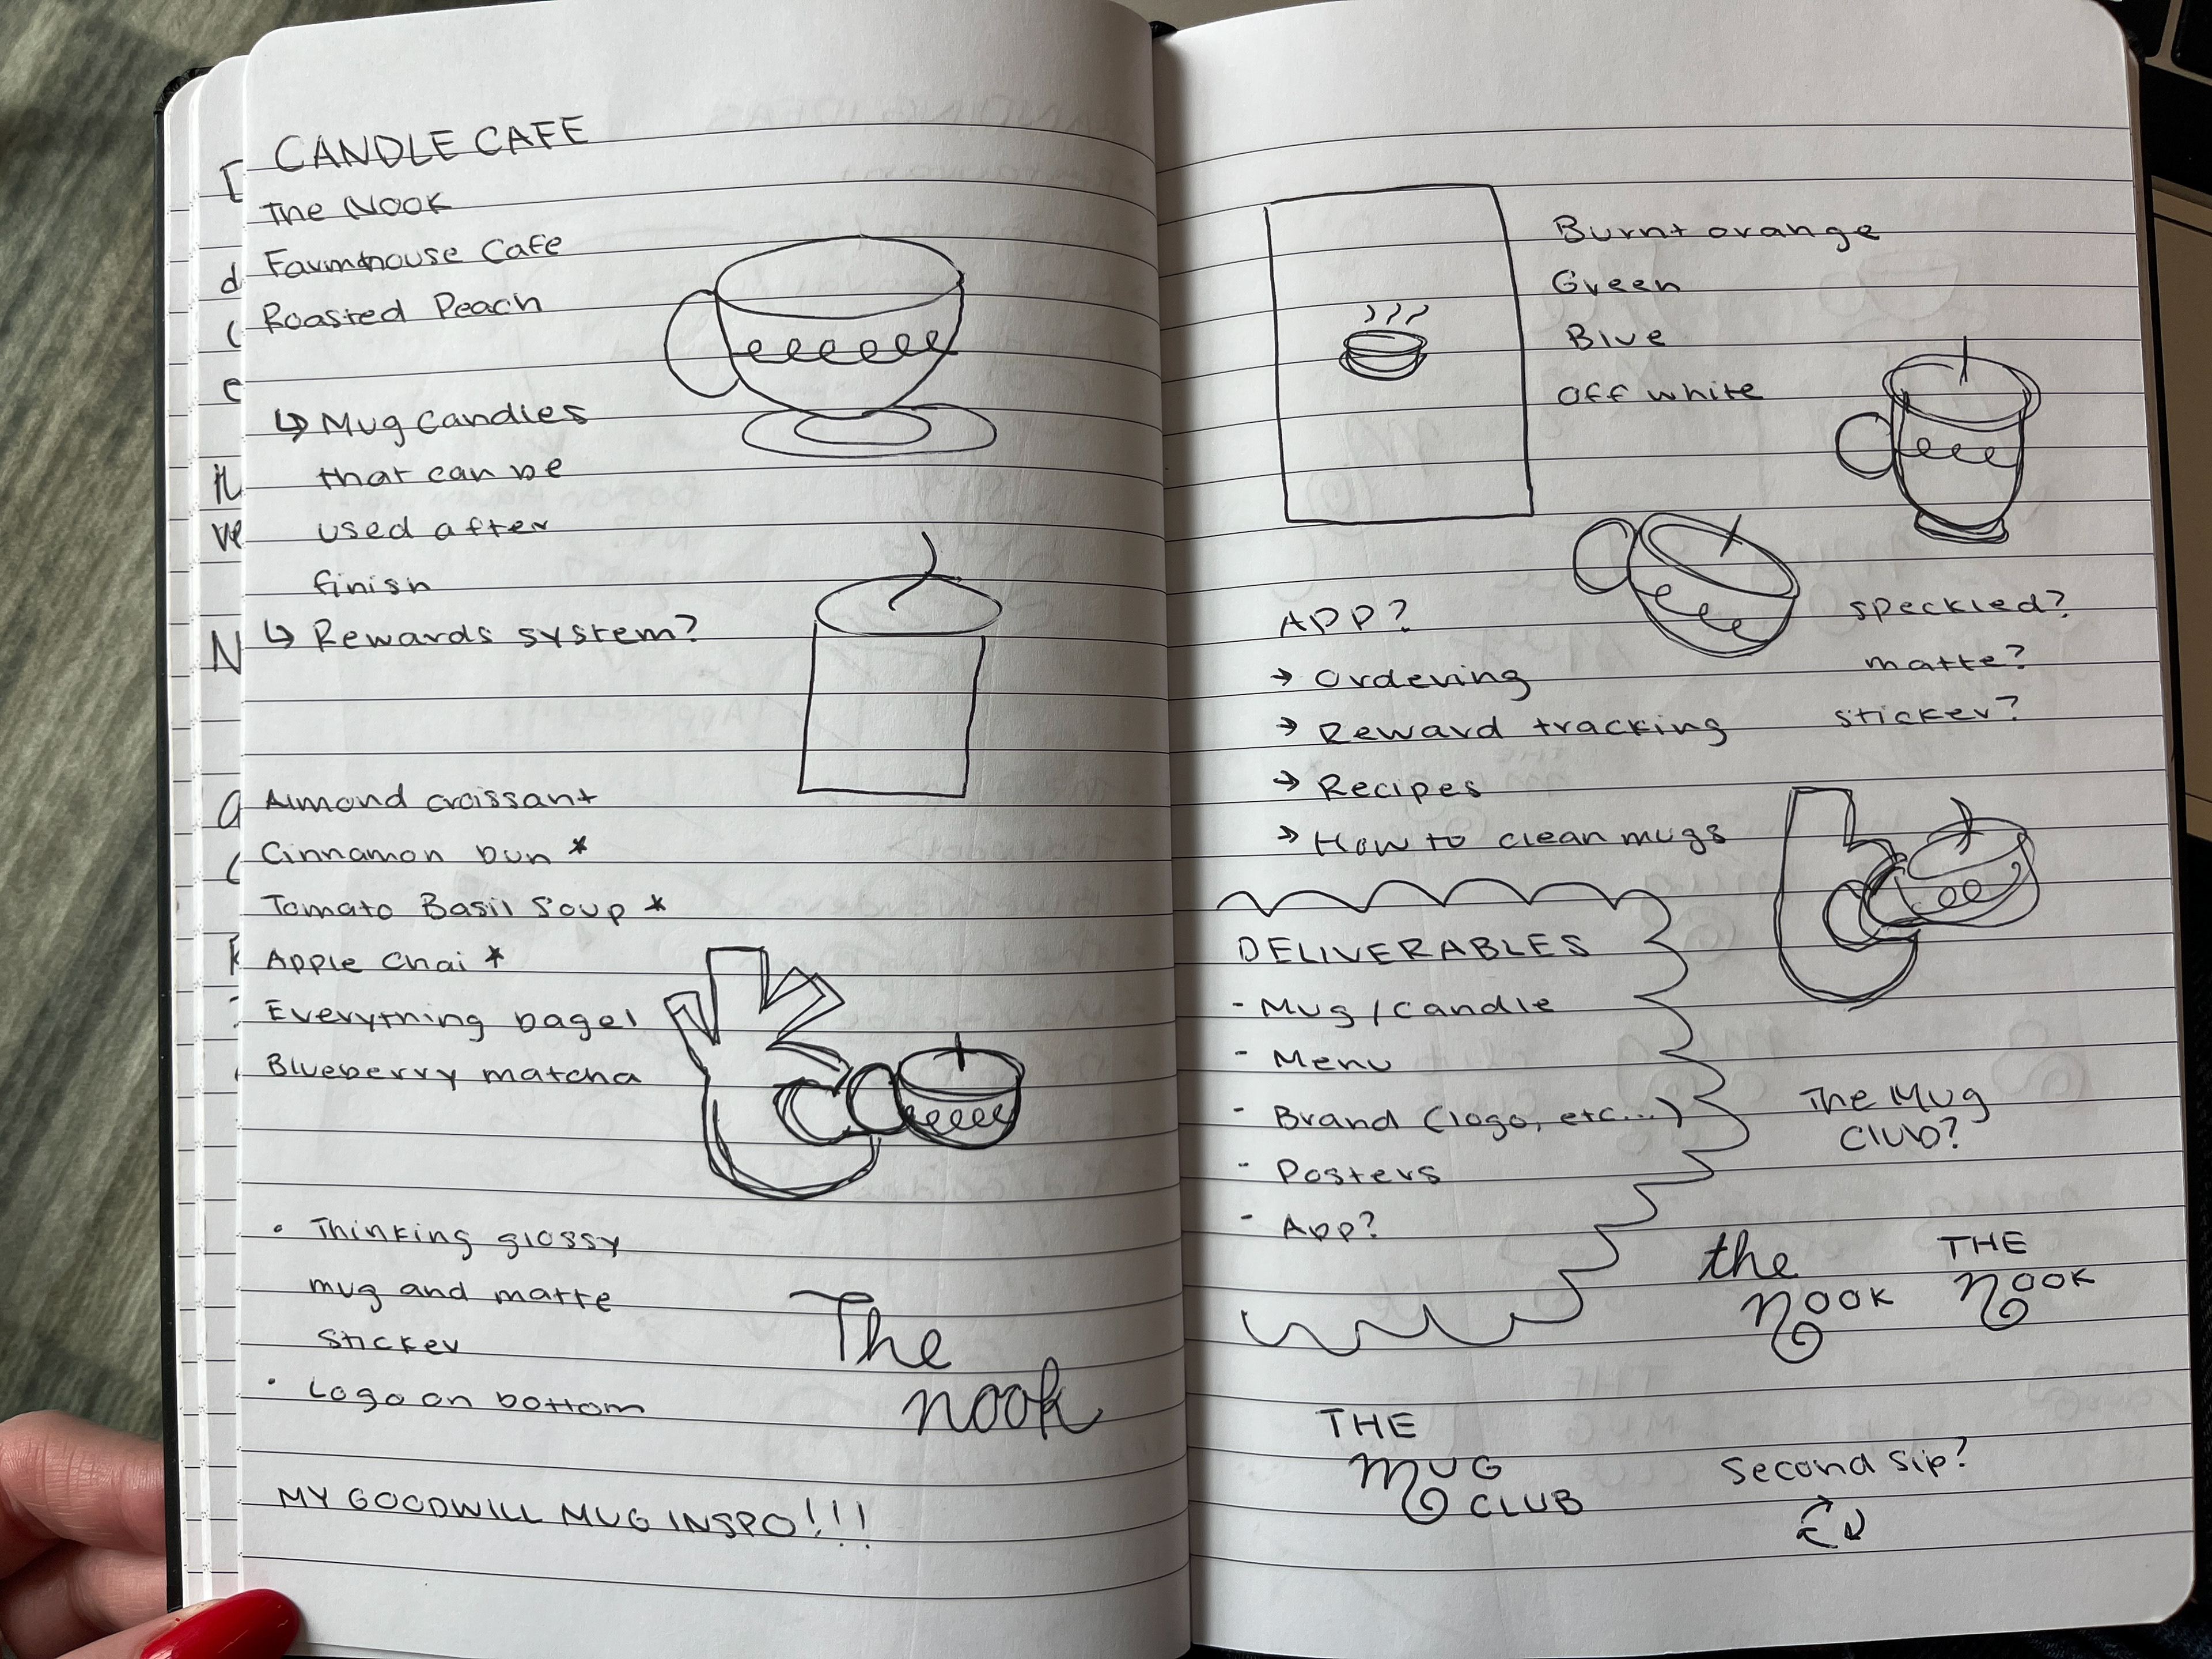 CANDLE CAFE
The Nook
Farmhouse Cafe
Roasted Peach
↳ Mug Candles
that can be
used after
finish
↳ Rewards system?
Almond croissant
Cinnamon bun *
Tomato Basil Soup *
Apple Chai *
Everything bagel
Blueberry matcha
• Thinking glossy
mug and matte
sticker
• Logo on bottom
The
nook
MY GOODWILL MUG INSPO!!!
Burnt orange
Green
Blue
Off white
APP?
→ Ordering
→ Reward tracking
→ Recipes
→ How to clean mugs
speckled?
matte?
sticker?
DELIVERABLES
- Mug/Candle
- Menu
- Brand (logo, etc...)
- Posters
- App?
The Mug
Club?
the
nOOK
THE
nOOK
THE
mUG
CLUB
Second Sip?